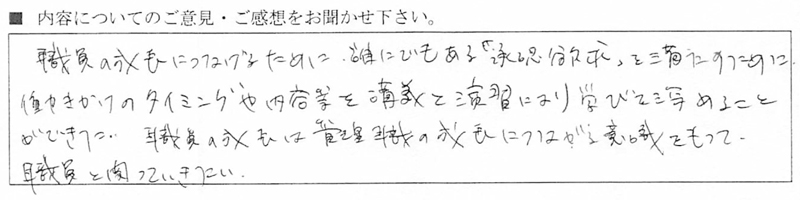 ■ 内容についてのご意見・ご感想をお聞かせ下さい。
職員の成長につなげるために、誰にでもある「承認欲求」を満たすために
働きかけのタイミングや内容等を講義と演習により学びを深めること
ができた。 職員の成長は管理職の成長につながる意識をもって、
職員と関っていきたい。